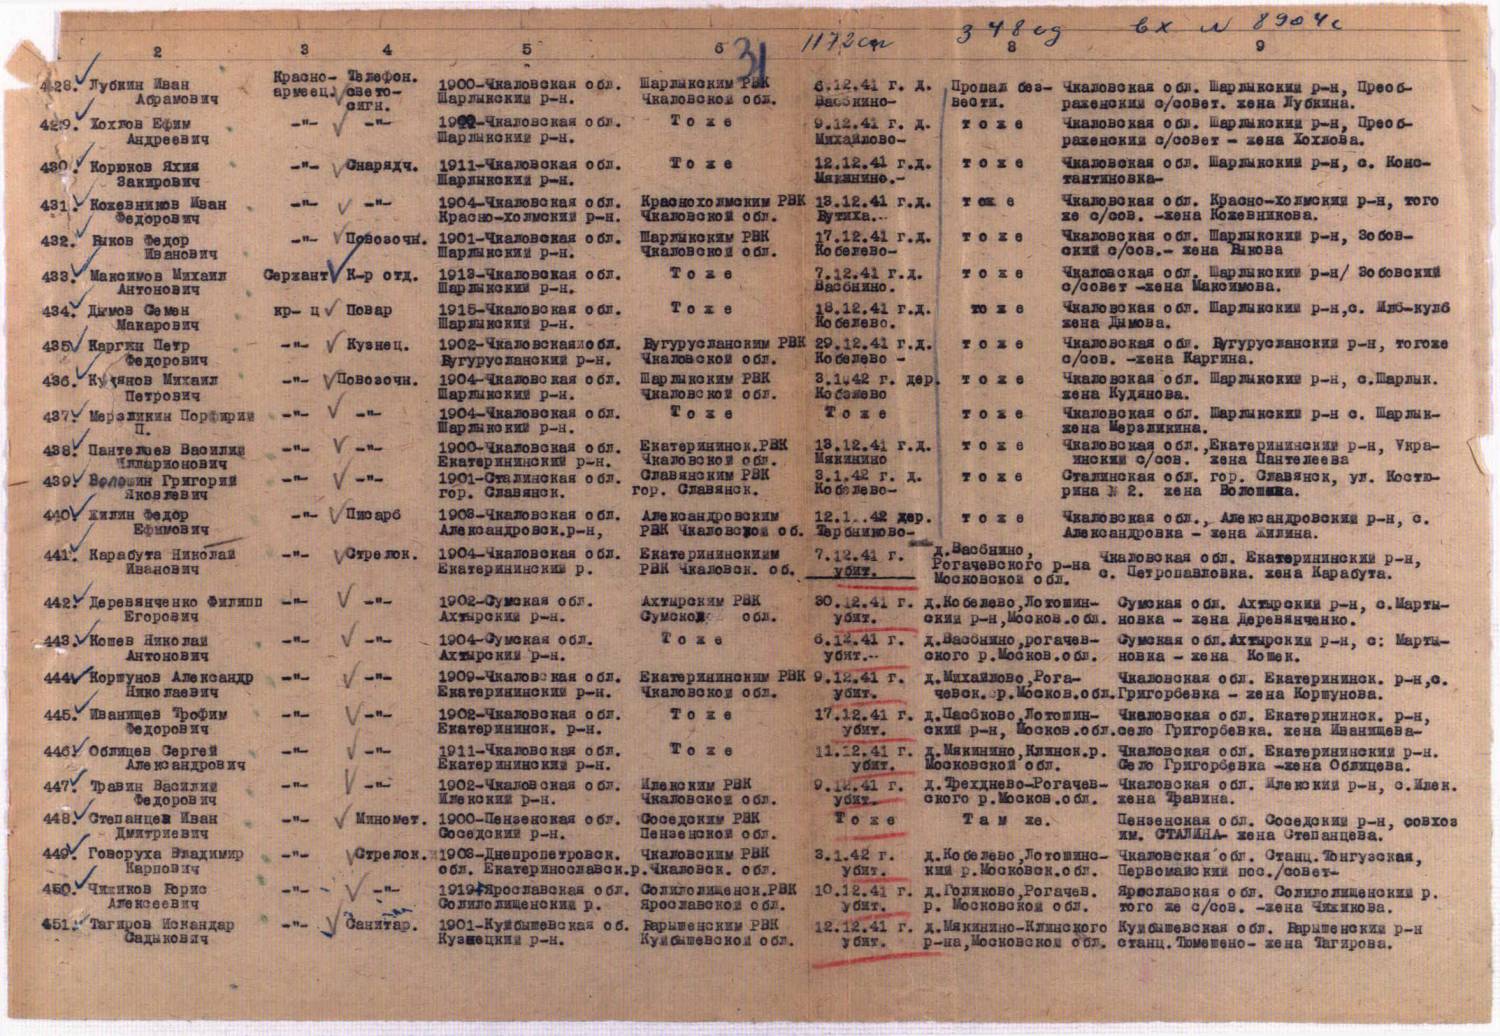 1172сп 348сд вх № 8904с
2 3 4 5 6 31 8 9
428. Лубкин Иван Красно- Телефон. 1900-Чкаловская обл. Шарлыкским РВК 6.12.41 г. д. Пропал без- Чкаловская обл. Шарлыкский р-н, Преоб-
Абрамович армеец. свето- Шарлыкский р-н. Чкаловской обл. Васьнино- вести. раженский с/совет. жена Лубкина.
сигн.
429. Хохлов Ефим -"- -"- Чкаловская обл. Тоже 9.12.41 г. д. тоже Чкаловская обл. Шарлыкский р-н, Преоб-
Андреевич Шарлыкский р-н. Михайлово- раженский с/совет - жена Хохлова.
430. Корюков Яхия -"- Снарядч. 1911-Чкаловская обл. Тоже 12.12.41 г.д. тоже Чкаловская обл. Шарлыкский р-н, с. Конс-
Закирович Шарлыкский р-н. Мякинино.- тантиновка-
431. Кожевников Иван -"- -"- 1904-Чкаловская обл. Краснохолмским РВК 13.12.41 г.д. тоже Чкаловская обл. Красно-холмский р-н, того
Федорович Красно-холмский р-н. Чкаловской обл. Бутиха.- же с/сов. -жена Кожевникова.
432. Быков Федор -"- Повозочн. 1901-Чкаловская обл. Шарлыкским РВК 17.12.41 г.д. тоже Чкаловская обл. Шарлыкский р-н, Зобов-
Иванович Шарлыкский р-н. Чкаловской обл. Кобелево- ский с/сов.- жена Быкова
433. Максимов Михаил Сержант К-р отд. 1913-Чкаловская обл. Тоже 7.12.41 г.д. тоже Чкаловская обл. Шарлыкский р-н/ Зобовский
Антонович Шарлыкский р-н. Васьнино. с/совет -жена Максимова.
434. Дымов Семен кр- ц Повар 1915-Чкаловская обл. Тоже 18.12.41 г.д. тоже Чкаловская обл. Шарлыкский р-н,с. Юль-куль
Макарович Шарлыкский р-н. Кобелево. жена Дымова.
435. Каргин Петр -"- Кузнец. 1902-Чкаловская обл. Бугурусланским РВК 29.12.41 г.д. тоже Чкаловская обл. Бугурусланский р-н, тогоже
Федорович Бугурусланский р-н. Чкаловской обл. Кобелево - с/сов. -жена Каргина.
436. Кудянов Михаил -"- Повозочн. 1904-Чкаловская обл. Шарлыкским РВК 3.1.42 г. дер. тоже Чкаловская обл. Шарлыкский р-н, с.Шарлык.
Петрович Шарлыкский р-н. Чкаловской обл. Кобелево жена Кудянова.
437. Мерзликин Порфирий -"- -"- 1904-Чкаловская обл. Тоже Тоже тоже Чкаловская обл. Шарлыкский р-н с. Шарлык-
П. Шарлыкский р-н. жена Мерзликина.
438. Пантелеев Василий -"- -"- 1900-Чкаловская обл. Екатерининск.РВК 13.12.41 г.д. тоже Чкаловская обл.,Екатерининский р-н, Укра-
Илларионович Екатерининский р-н. Чкаловской обл. Мякинино инский с/сов. жена Пантелеева
439. Волошин Григорий -"- -"- 1901-Сталинская обл. Славянским РВК 3.1.42 г. д. тоже Сталинская обл. гор. Славянск, ул. Костю-
Яковлевич гор. Славянск. гор. Славянск. Кобелево- рина № 2. жена Волошина.
440. Жилин Федор -"- Писарь 1903-Чкаловская обл. Александровским 12.1..42 дер. тоже Чкаловская обл., Александровский р-н, с.
Ефимович Александровск.р-н, РВК Чкаловской об. Александровка - жена Жилина.
441. Карабута Николай -"- Стрелок. 1904-Чкаловская обл. Екатерининским 7.12.41 г. д.Васьнино, Чкаловская обл. Екатерининский р-н,
Иванович Екатерининский р. РВК Чкаловск. об. убит. Рогачевского р-на с. Петропавловка. жена Карабута.
Московской обл.
442. Деревянченко Филипп -"- -"- 1902-Сумская обл. Ахтырским РВК 30.12.41 г. д.Кобелево,Лотошин- Сумская обл. Ахтырский р-н, с.Марты-
Егорович Ахтырский р-н. Сумской обл. убит. ский р-н,Москов.обл. новка - жена Деревянченко.
443. Кошев Николай -"- -"- 1904-Сумская обл. Тоже 6.12.41 г. д.Васьнино,рогачев- Сумская обл.Ахтырский р-н, с: Марты-
Антонович Ахтырский р-н. убит.- ского р.Москов.обл. новка - жена Кошек.
444. Коршунов Александр -"- -"- 1909-Чкаловская обл. Екатерининским РВК 9.12.41 г. д.Михайлово,Рога- Чкаловская обл. Екатерининск. р-н,с.
Николаевич Екатерининский р-н. Чкаловской обл. убит. чевск. р.Москов.обл. Григорьевка - жена Коршунова.
445. Иванищев Трофим -"- -"- 1902-Чкаловская обл. Тоже 17.12.41 г. д.Паськово,Лотошин- Чкаловская обл. Екатерининск. р-н,
Федорович Екатерининск. р-н. убит. ский р-н, Москов.обл. село Григорьевка. жена Иванищева-
446. Облицев Сергей -"- -"- 1911-Чкаловская обл. Тоже 11.12.41 г. д.Мякинино,Клинск.р. Чкаловская обл. Екатерининский р-н.
Александрович Екатерининский р-н. убит. Московской обл. Село Григорьевка -жена Облицева.
447. Травин Василий -"- -"- 1902-Чкаловская обл. Илекским РВК 9.12.41 г. д.Трехднево-Рогачев- Чкаловская обл. Илекский р-н, с.Илек.
Федорович Илекский р-н. Чкаловской обл. убит. ского р.Москов.обл. жена Травина.
448. Степанцев Иван -"- Миномет. 1900-Пензенская обл. Соседским РВК Тоже Там же. Пензенская обл. Соседский р-н, совхоз
Дмитриевич Соседский р-н. Пензенской обл. им. СТАЛИНА- жена Степанцева.
449. Говоруха Владимир -"- Стрелок. 1903-Днепропетровск. Чкаловским РВК 3.1.42 г. д.Кобелево,Лотошинс- Чкаловская обл. Станц.Тонгузская,
Карпович обл. Екатеринославск.р. Чкаловск. обл. убит. кий р.Московск.обл. Первомайский пос./совет-
450. Чижиков Борис -"- -"- 1919-Ярославская обл. Солилолищенск.РВК 10.12.41 г. д.Голиково,Рогачев. Ярославская обл. Солилолищенский р.
Алексеевич Солилолищенский р. Ярославской обл. убит. р. Московской обл. того же с/сов. -жена Чижикова.
451. Тагиров Искандар -"- Санитар. 1901-Куйбышевская об. Барышенским РВК 12.12.41 г. д.Мякинино-Клинского Куйбышевская обл. Барышенский р-н
Садыкович Кузнецкий р-н. Куйбышевской обл. убит. р-на,Московской обл. станц.Тюмешено- жена Тагирова.